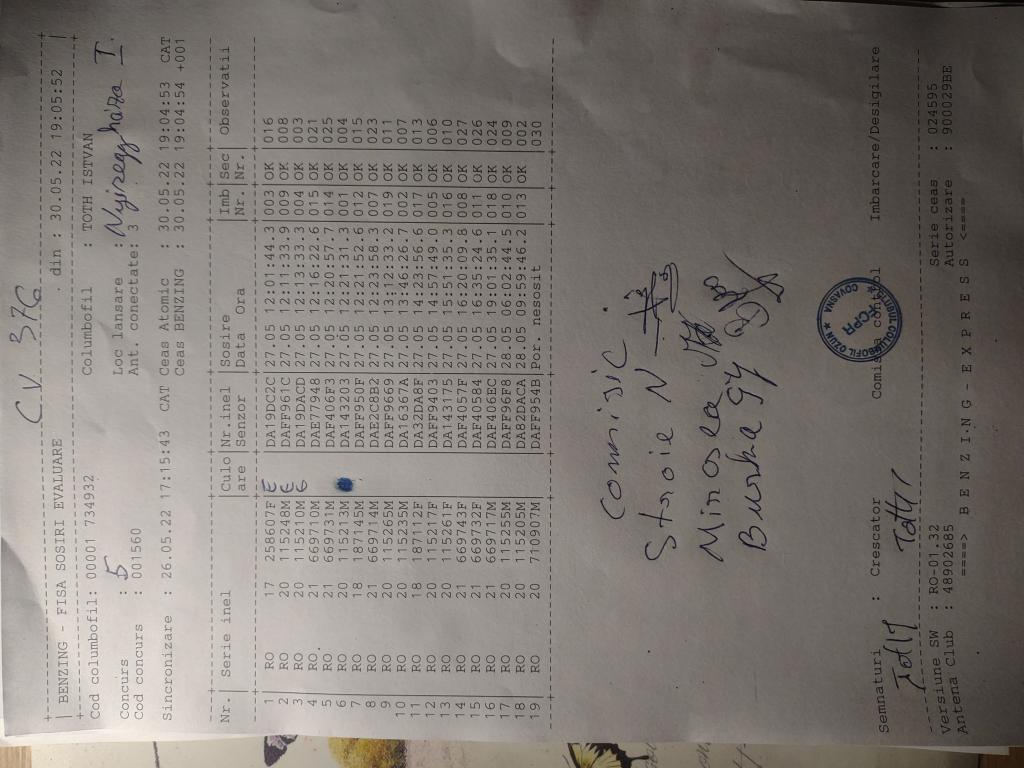 C.V. 376
BENZING - FISA SOSIRI EVALUARE din : 30.05.22 19:05:52
Cod columbofil: 00001 734932 Columbofil : TOTH ISTVAN
Concurs : 5 Loc lansare : Nyiregyhaza I.
Cod concurs : 001560 Ant. conectate: 3
Sincronizare : 26.05.22 17:15:43 CAT Ceas Atomic : 30.05.22 19:04:53 CAT
Ceas BENZING : 30.05.22 19:04:54 +001
Nr. Serie inel Culo Nr.inel Sosire Imb Sec Observatii
are Senzor Data Ora Nr. Nr.
1 RO 17 258607F E DA19DC2C 27.05 12:01:44.3 003 OK 016
2 RO 20 115248M E DAFF961C 27.05 12:11:33.9 009 OK 008
3 RO 20 115210M G DA19DACD 27.05 12:13:33.3 004 OK 003
4 RO 21 669710M DAE77948 27.05 12:16:22.6 015 OK 021
5 RO 21 669731M DAF406F3 27.05 12:20:57.7 014 OK 025
6 RO 20 115213M DA143203 27.05 12:21:31.3 001 OK 004
7 RO 18 187145M DAFF950F 27.05 12:21:52.6 012 OK 015
8 RO 21 669714M DAE2C8B2 27.05 12:23:58.3 007 OK 023
9 RO 20 115265M DAFF9669 27.05 13:12:33.2 019 OK 011
10 RO 20 115235M DA16367A 27.05 13:46:26.7 002 OK 007
11 RO 18 187112F DA32DA8F 27.05 14:23:56.6 017 OK 013
12 RO 20 115217F DAFF9403 27.05 14:57:49.0 005 OK 006
13 RO 20 115261F DA143175 27.05 15:51:33.3 016 OK 010
14 RO 21 669743F DAF4057F 27.05 16:20:03.8 008 OK 027
15 RO 21 669732F DAF40584 27.05 16:35:24.6 011 OK 026
16 RO 21 669717M DAF406EC 27.05 19:01:35.1 018 OK 024
17 RO 20 115255M DAFF96F8 28.05 06:02:44.5 010 OK 009
18 RO 20 115205M DA82DACA 28.05 09:59:46.2 013 OK 002
19 RO 20 710907M DAFF954B Por. nesosit 030
Comisic
Stroie N
Minosea
Bursha Gy
Semnaturi : Crescator Comisia control Imbarcare/Desigilare
Toth
CLUBUL COLUMBOFIL OZUN
FCPR
COVASNA
Versiune SW : RO-01.32 Serie ceas : 024595
Antena Club : 48902685 Autorizare : 900029BE
====> B E N Z I N G - E X P R E S S <====